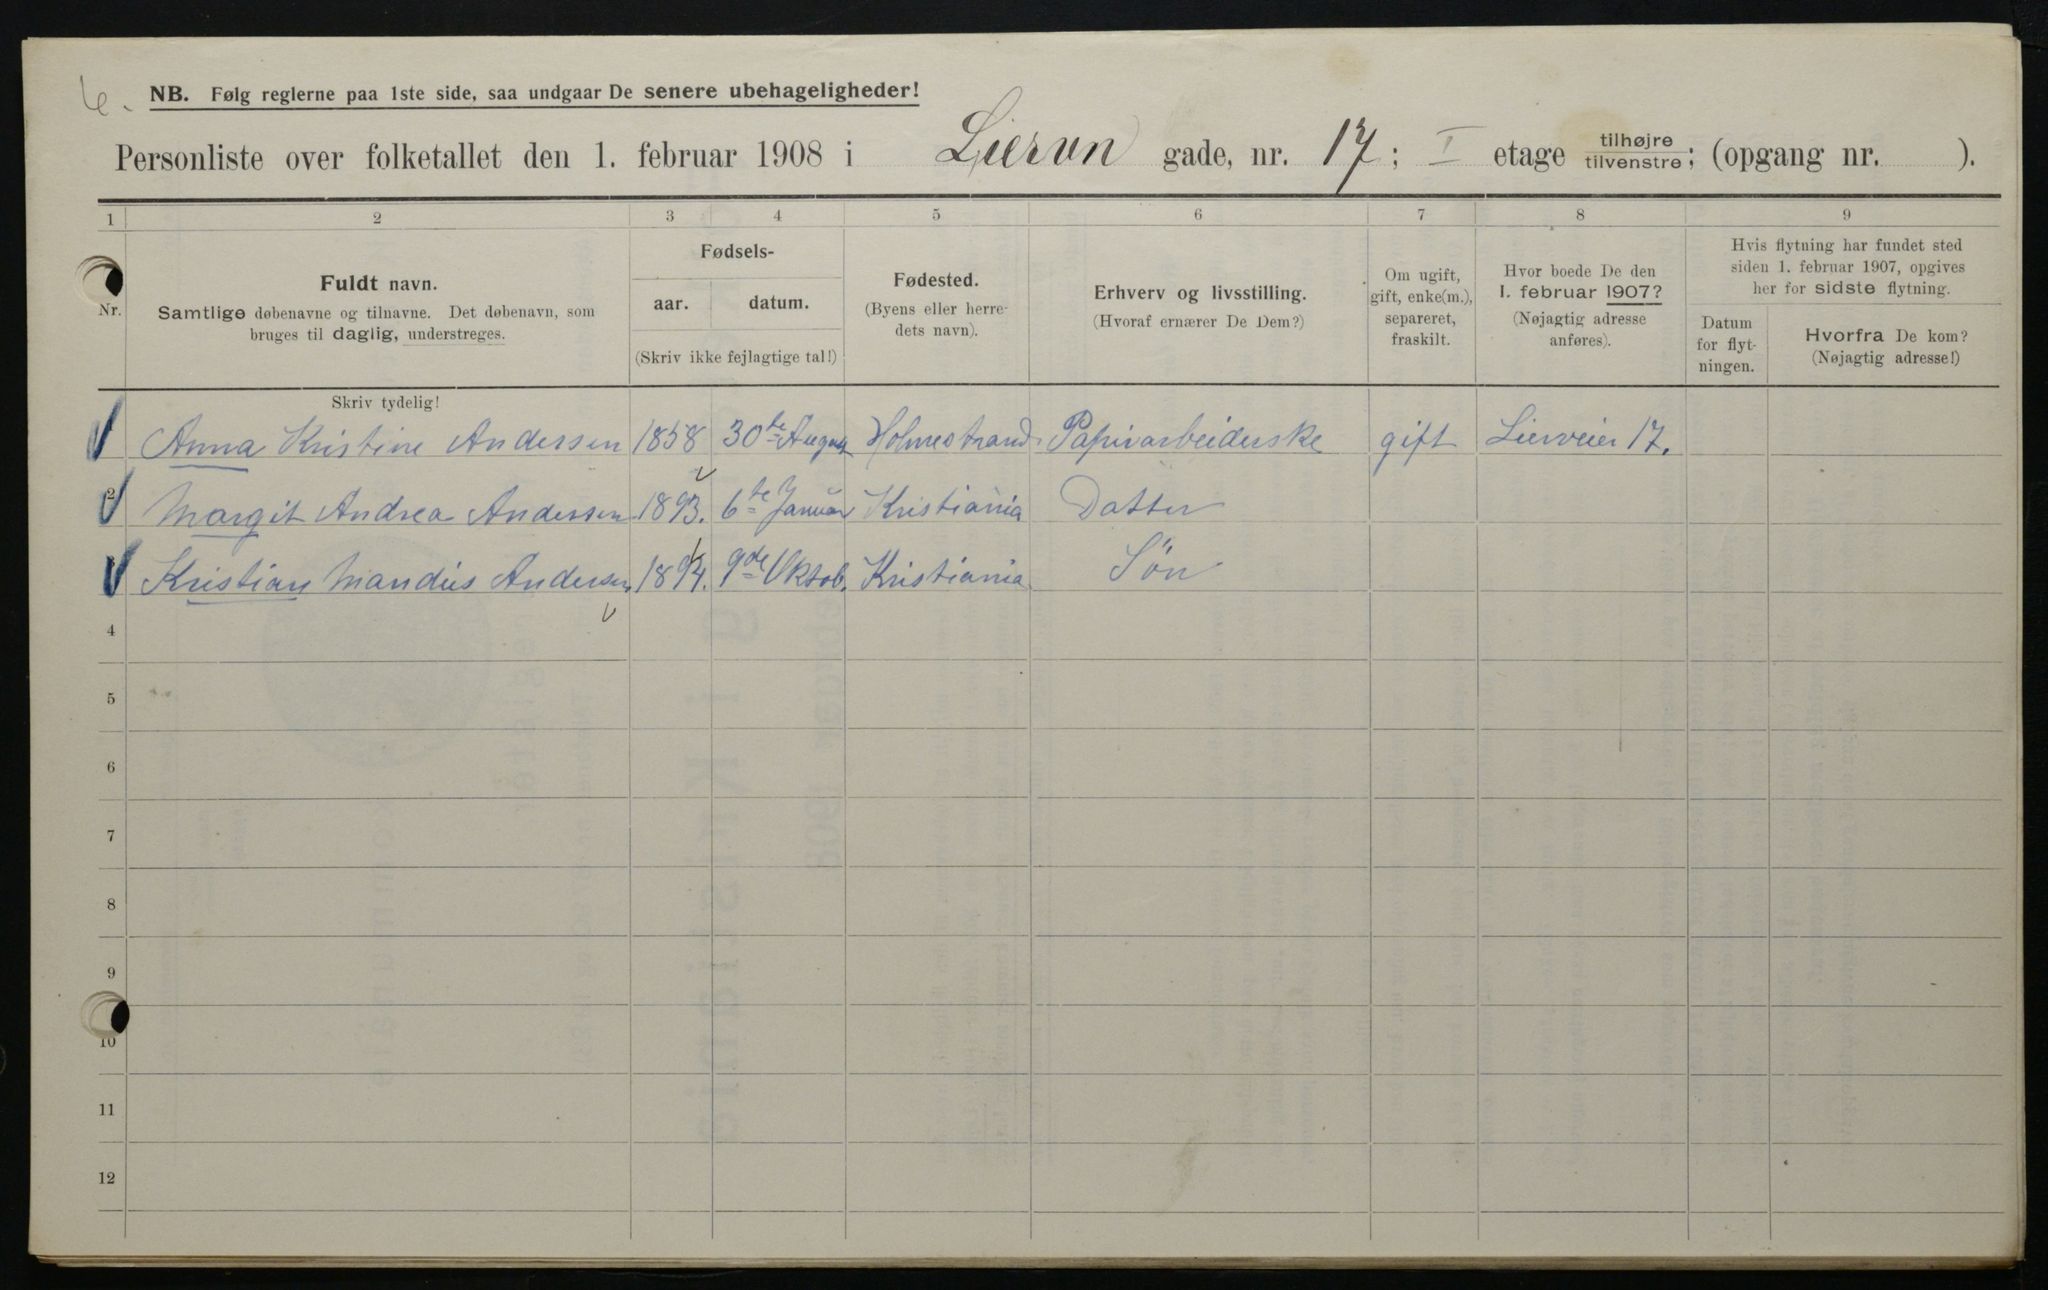 6.
NB. Følg reglerne paa 1ste side, saa undgaar De senere ubehageligheder!
Personliste over folketallet den 1. februar 1908 i Liervn gade, nr. 17; I etage tilhøjre tilvenstre; (opgang nr. ).
1 2 3 4 5 6 7 8 9
Nr.
Fuldt navn.
Samtlige døbenavne og tilnavne. Det døbenavn, som
bruges til daglig, understreges.
Skriv tydelig!
Fødsels-
aar. datum.
(Skriv ikke fejlagtige tal!)
Fødested.
(Byens eller herre-
dets navn).
Erhverv og livsstilling.
(Hvoraf ernærer De Dem?)
Om ugift,
gift, enke(m.),
separeret,
fraskilt.
Hvor boede De den
1. februar 1907?
(Nøjagtig adresse
anføres).
Hvis flytning har fundet sted
siden 1. februar 1907, opgives
her for sidste flytning.
Datum
for flyt-
ningen.
Hvorfra De kom?
(Nøjagtig adresse!)
Anna Kristine Andersen 1858 30te August Holmestrand Papirarbeiderske gift Lierveien 17.
2 Margit Andrea Andersen 1893. 6te Januar Kristiania Datter
Kristian Mandius Andersen 1894. 9de Oktob. Kristiania Søn
4
5
6
7
8
9
10
11
12